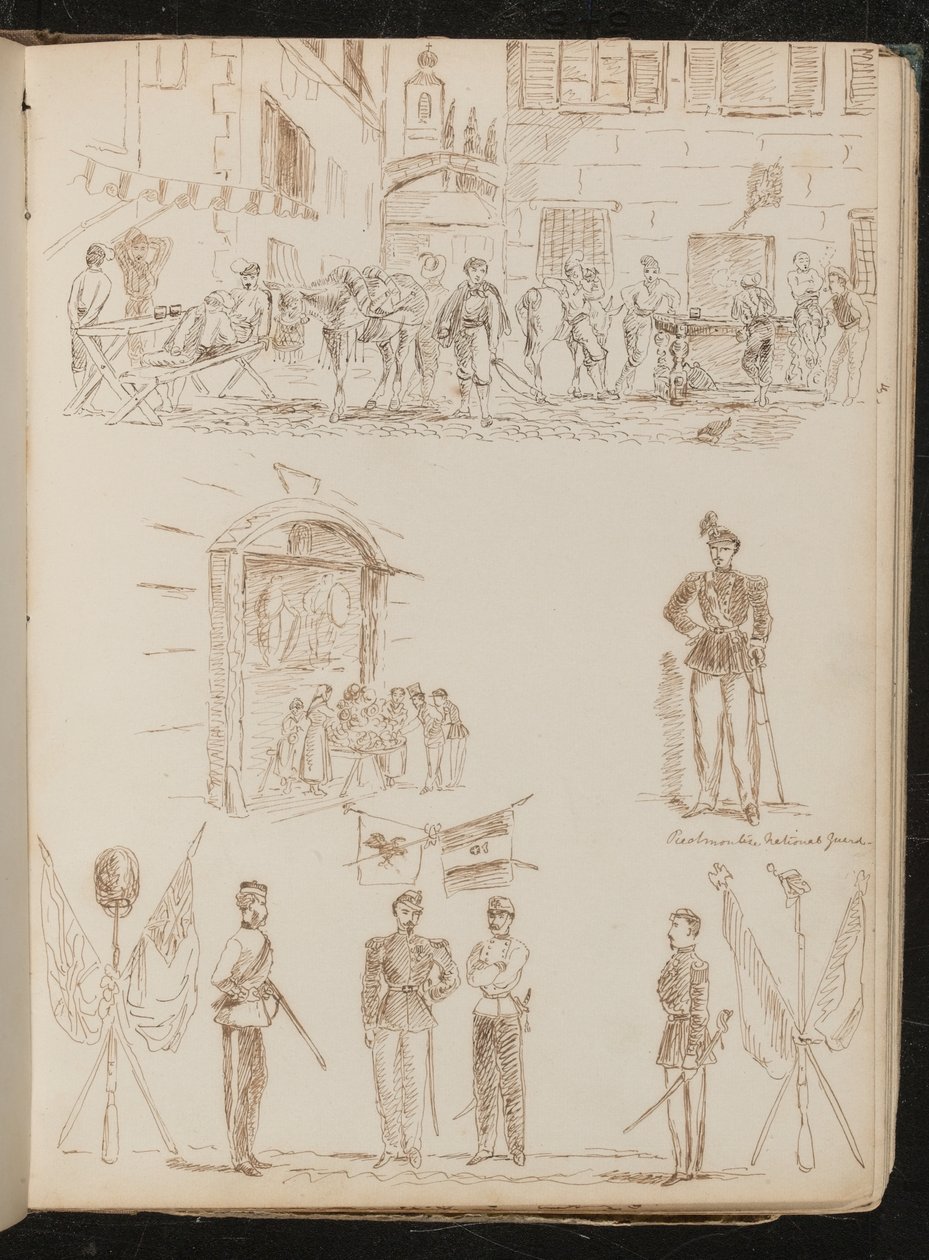 Piedmontese National Guard-